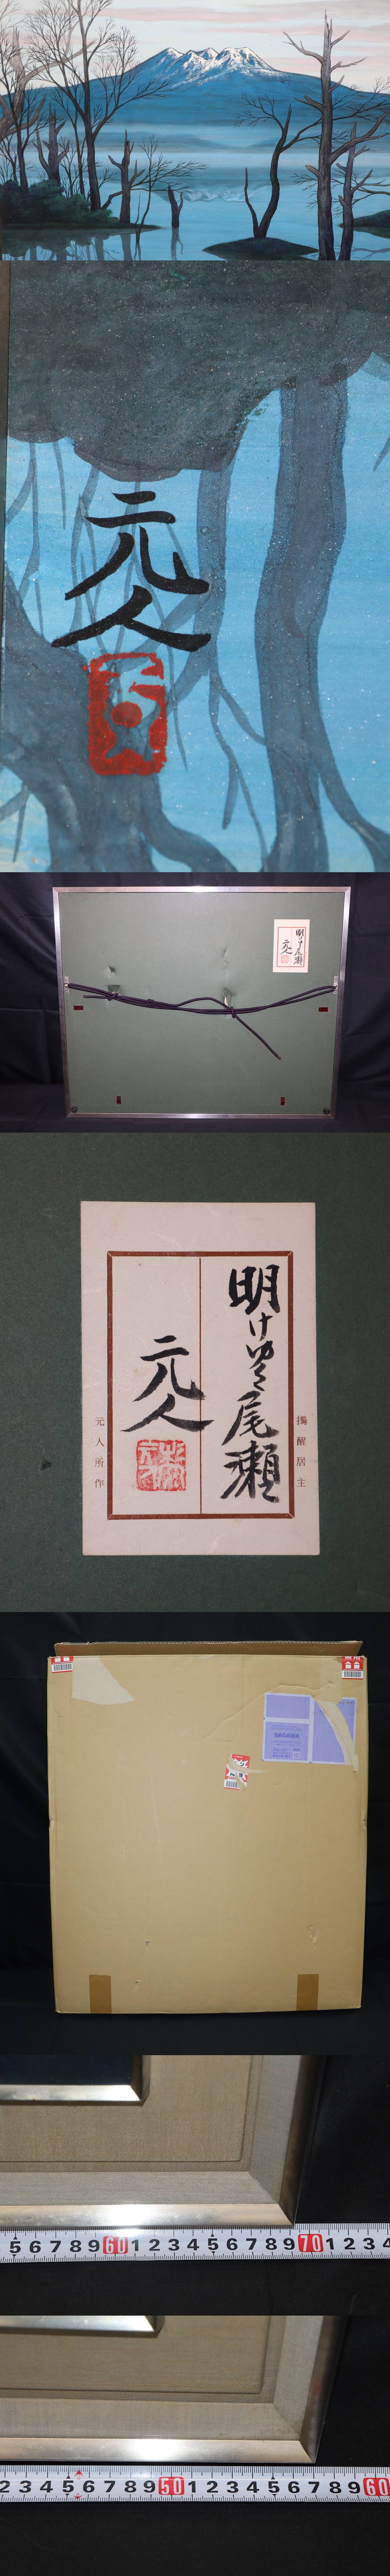 元人
明けゆく尾瀬
元人
明けゆく尾瀬
元人
揭醒居主
元人所作
SAGAWA
5 6 7 8 9 60 1 2 3 4 5 6 7 8 9 70 1 2 3 4
2 3 4 5 6 7 8 9 50 1 2 3 4 5 6 7 8 9 60